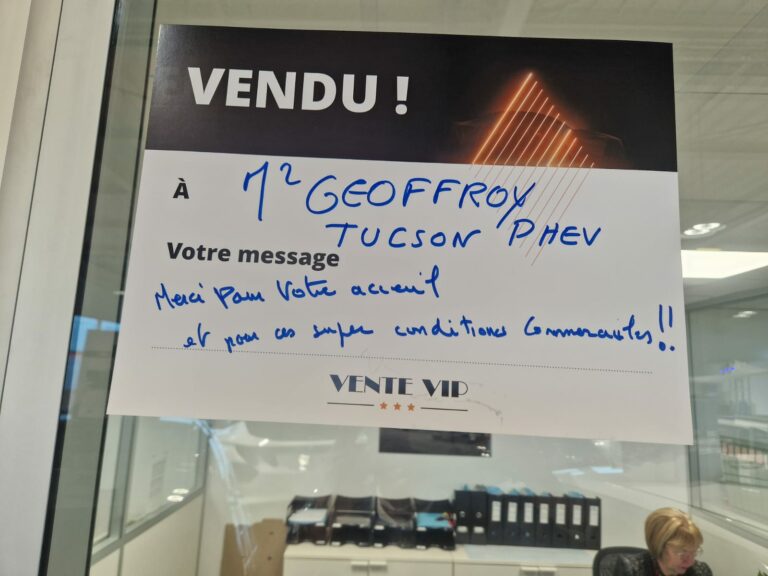 VENDU !
À Mr GEOFFROY
TUCSON PHEV
Votre message
Merci Pour Votre accueil
et pour ces super conditions Commerciales !!
VENTE VIP